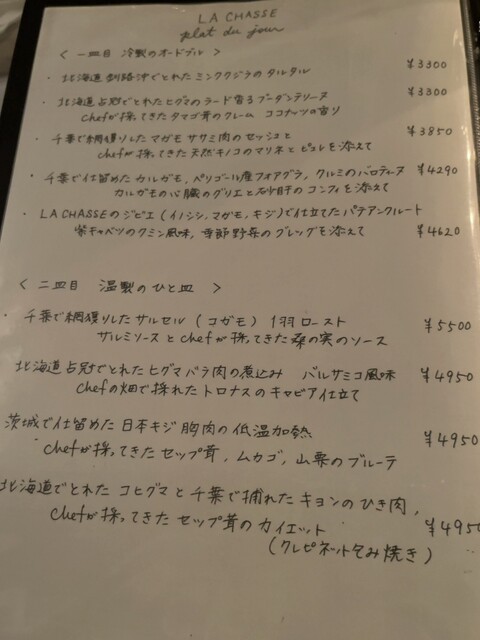 LA CHASSE
plat du jour
< 一皿目 冷製のオードブル >
・北海道 釧路沖でとれた ミンククジラの タルタル ¥3300
・北海道占冠でとれたヒグマのラード香るブーダンテリーヌ ¥3300
chefが採ってきたタマゴ茸のクレーム ココナッツの香り
・千葉で網獲りしたマガモ ササミ肉のセッシュと ¥3850
chefが採ってきた天然キノコのマリネとピュレを添えて
・千葉で仕留めたカルガモ、ペリゴール産フォアグラ、クルミのバロティーヌ ¥4290
カルガモの心臓のグリエと砂肝のコンフィを添えて
・LA CHASSEのジビエ(イノシシ、マガモ、キジ)で仕立てたパテアンクルート
紫キャベツのクミン風味、季節野菜のグレッグを添えて ¥4620
< 二皿目 温製のひと皿 >
・千葉で網獲りしたサルセル(コガモ) 1羽ロースト ¥5500
サルミソースとchefが採ってきた桑の実のソース
北海道占冠でとれたヒグマバラ肉の煮込み バルサミコ風味 ¥4950
chefの畑で採れたトロナスのキャビア仕立て
茨城で仕留めた日本キジ胸肉の低温加熱 ¥4950
chefが採ってきたセップ茸、ムカゴ、山栗のブルーテ
北海道でとれたコヒグマと千葉で捕れたキョンのひき肉、
chefが採ってきたセップ茸のカイエット ¥495
(クレピネット包み焼き)